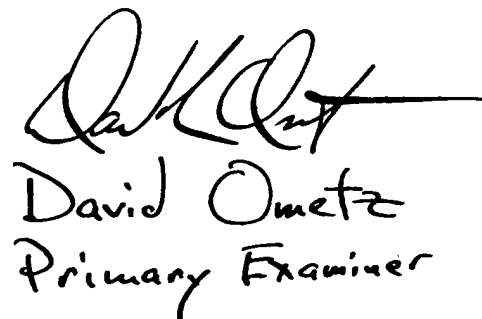 David Ometz
Primary Examiner